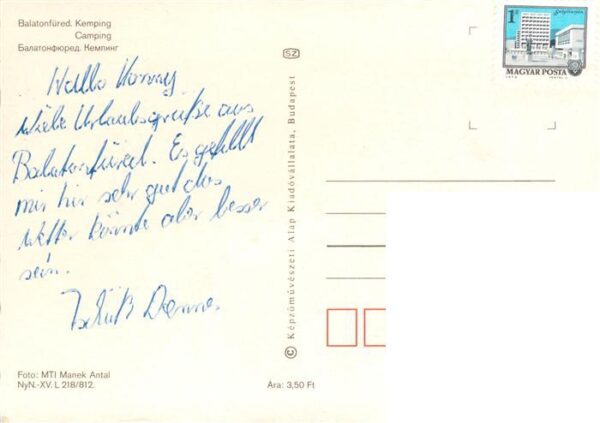 Balatonfüred. Kemping
Camping
Балатонфюред. Кемпинг
Hallo
Viele Urlaubsgrüße aus
Balatonfüred. Es gefällt
mir hir sehr gut das
Wetter könnte aber besser
sein.
Tschüß
Foto: MTI Manek Antal
NyN.-XV. L 218/812.
Ára: 3,50 Ft
SZ
© Képzőművészeti Alap Kiadóvállalata, Budapest
1Ft
MAGYAR POSTA